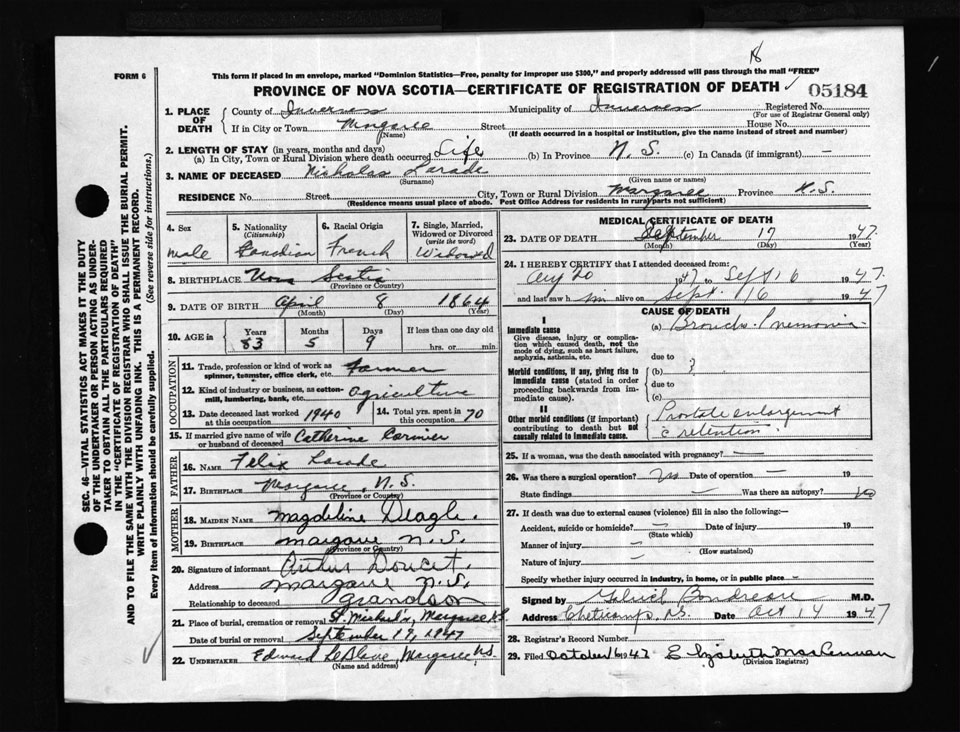 18
FORM 6
This form if placed in an envelope, marked "Dominion Statistics—Free, penalty for improper use $300," and properly addressed will pass through the mail "FREE"
PROVINCE OF NOVA SCOTIA—CERTIFICATE OF REGISTRATION OF DEATH 05184
1. PLACE OF DEATH County of Inverness Municipality of Inverness Registered No.
(For use of Registrar General only)
If in City or Town Margaree Street House No.
(Name) (If death occurred in a hospital or institution, give the name instead of street and number)
2. LENGTH OF STAY (in years, months and days)
(a) In City, Town or Rural Division where death occurred Life (b) In Province N. S. (c) In Canada (if immigrant) —
3. NAME OF DECEASED Nicholas Larade
(Surname) (Given name or names)
RESIDENCE No. Street City, Town or Rural Division Margaree Province N.S.
(Residence means usual place of abode. Post Office Address for residents in rural parts not sufficient)
SEC. 46—VITAL STATISTICS ACT MAKES IT THE DUTY
OF THE UNDERTAKER OR PERSON ACTING AS UNDER-
TAKER TO OBTAIN ALL THE PARTICULARS REQUIRED
IN THE "CERTIFICATE OF REGISTRATION OF DEATH"
AND TO FILE THE SAME WITH THE DIVISION REGISTRAR WHO SHALL ISSUE THE BURIAL PERMIT.
WRITE PLAINLY WITH UNFADING INK. THIS IS A PERMANENT RECORD.
Every item of information should be carefully supplied. (See reverse side for instructions.)
4. Sex male
5. Nationality (Citizenship) Canadian
6. Racial Origin French
7. Single, Married, Widowed or Divorced (write the word) Widowed
8. BIRTHPLACE Nova Scotia
(Province or Country)
9. DATE OF BIRTH April 8 1864
(Month) (Day) (Year)
10. AGE in Years 83 Months 5 Days 9 If less than one day old hrs. or min.
OCCUPATION
11. Trade, profession or kind of work as spinner, teamster, office clerk, etc. farmer
12. Kind of industry or business, as cotton-mill, lumbering, bank, etc. agriculture
13. Date deceased last worked at this occupation 1940 14. Total yrs. spent in this occupation 70
15. If married give name of wife or husband of deceased Catherine Cormier
FATHER
16. NAME Felix Larade
17. BIRTHPLACE Margaree, N.S.
(Province or Country)
MOTHER
18. MAIDEN NAME Magdeline Deagle.
19. BIRTHPLACE Margaree N.S.
(Province or Country)
20. Signature of informant Arthur Doucet.
Address Margaree N.S.
Relationship to deceased grandson
21. Place of burial, cremation or removal St. Michael's, Margaree N.S.
Date of burial or removal September 19, 1947
22. UNDERTAKER Edward LeBlanc, Margaree, N.S.
(Name and address)
MEDICAL CERTIFICATE OF DEATH
23. DATE OF DEATH September 17 1947.
(Month) (Day) (Year)
24. I HEREBY CERTIFY that I attended deceased from:
Aug 20 1947 to Sept 16 1947.
and last saw him alive on Sept. 16 1947
CAUSE OF DEATH
I
Immediate cause
Give disease, injury or complication which caused death, not the mode of dying, such as heart failure, asphyxia, asthenia, etc.
(a) Broncho-Pnemonia
due to
Morbid conditions, if any, giving rise to immediate cause (stated in order proceeding backwards from immediate cause).
(b)
due to
(c)
II
Other morbid conditions (if important) contributing to death but not causally related to immediate cause.
Prostate enlargement
c retention.
25. If a woman, was the death associated with pregnancy? —
26. Was there a surgical operation? no Date of operation — 19
State findings — Was there an autopsy? no
27. If death was due to external causes (violence) fill in also the following:—
Accident, suicide or homicide? — Date of injury 19
(State which)
Manner of injury —
(How sustained)
Nature of injury —
Specify whether injury occurred in industry, in home, or in public place —
Signed by Gabriel Boudreau M.D.
Address Cheticamp, N.S. Date Oct 14 1947
28. Registrar's Record Number
29. Filed October 16 1947 Elizabeth MacLennan
(Division Registrar)